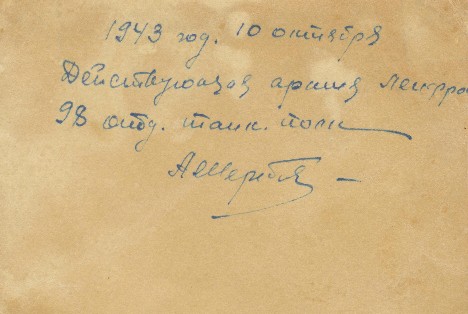 1943 год. 10 октября
Действующая армия Ленфро
98 отд. танк. полк